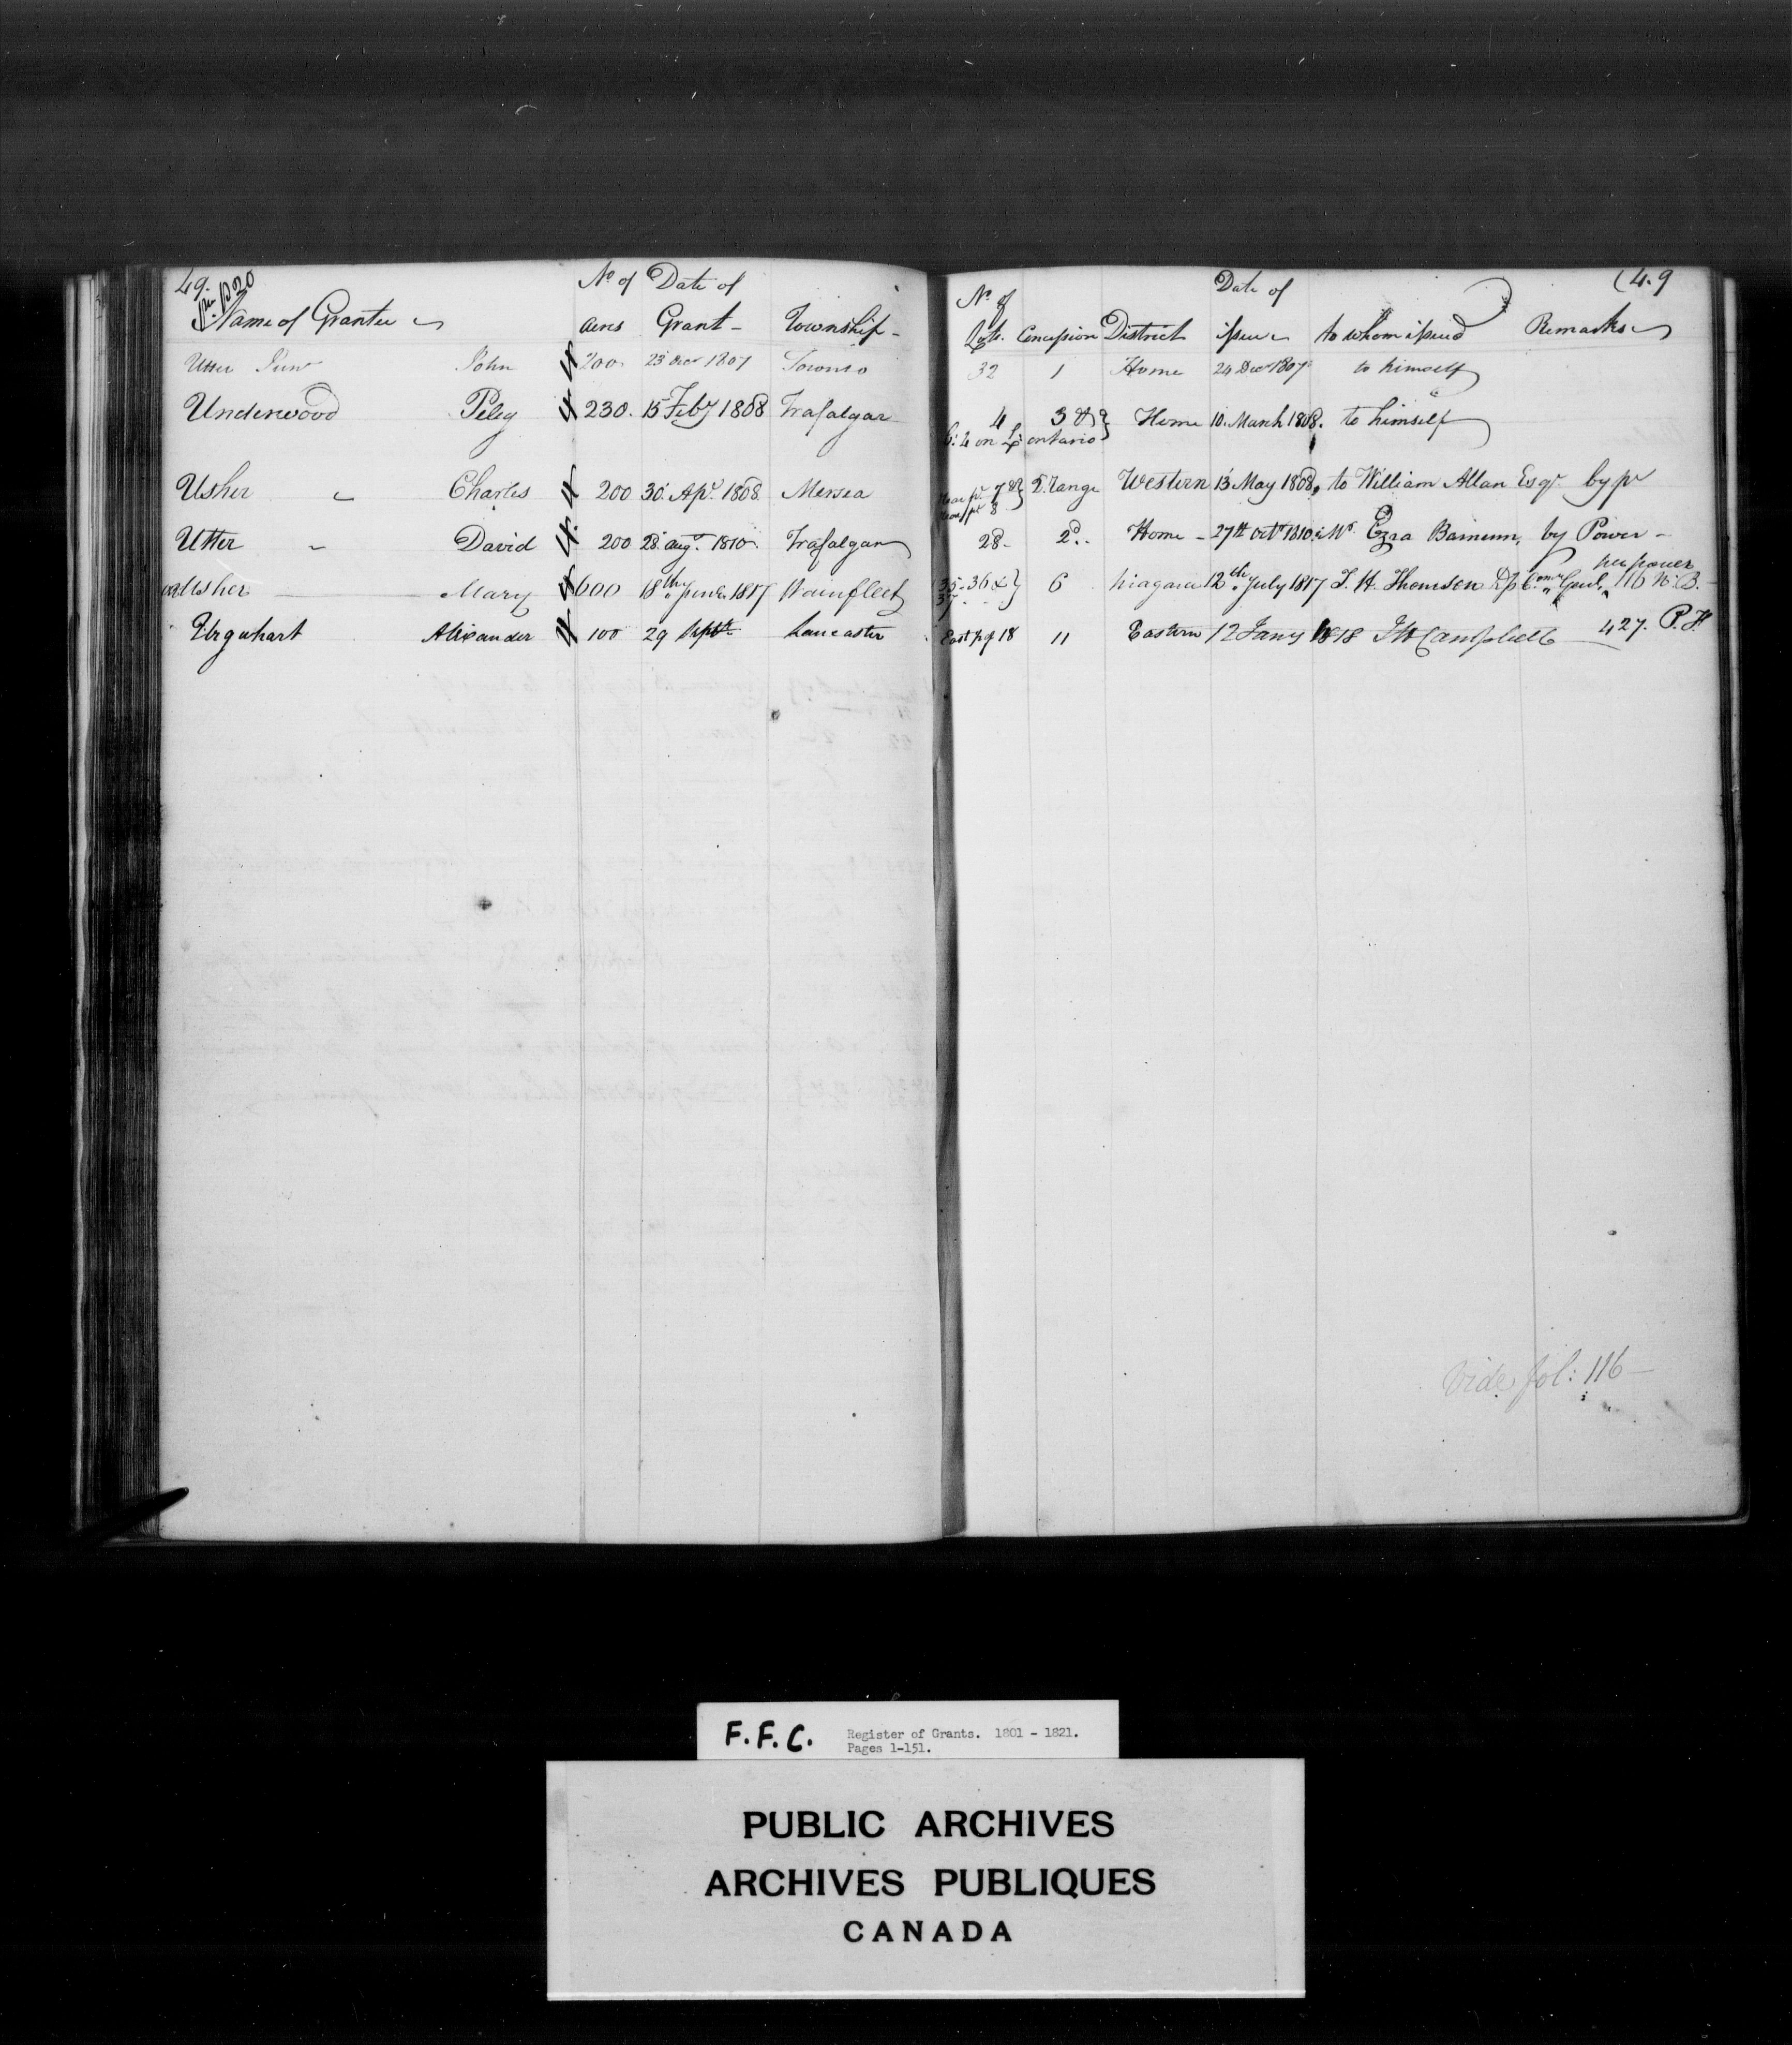 49.
p 20
No of Date of
Name of Grantee acres Grant - Township -
Utter Junr John 200. 23 Decr 1807 Toronto
Underwood Peleg 230. 15 Feby 1808 Trafalgar
Usher Charles 200 30. Apr. 1808. Mersea
Utter David 200 28. augt. 1810. Trafalgar
Usher Mary 600 18th June 1817 Wainfleet
Urquhart Alexander 100 29 Septr Lancaster
(49
No. of Date of
Lots. Concession District issue to whom issued Remarks
32 1 Home 24 Decr 1807 to himself
4 3 & } Home 10. March 1808. to himself
4 on L. ontario
7 & } D. Range Western 13 May 1808, to William Allan Esqr. by pr
8
28 - 2d. Home - 27th octr 1810 Mr. Ezra Barnum, by Power -
per power
35-36 & } 6 Niagara 12th July 1817 T. H. Thomson 116 N. B.
37
East pt of 18 11 Eastern 12 Jany 1818 Campbell 427. P. H.
Vide fol: 116 -
F.F.C. Register of Grants. 1801 - 1821.
Pages 1-151.
PUBLIC ARCHIVES
ARCHIVES PUBLIQUES
CANADA